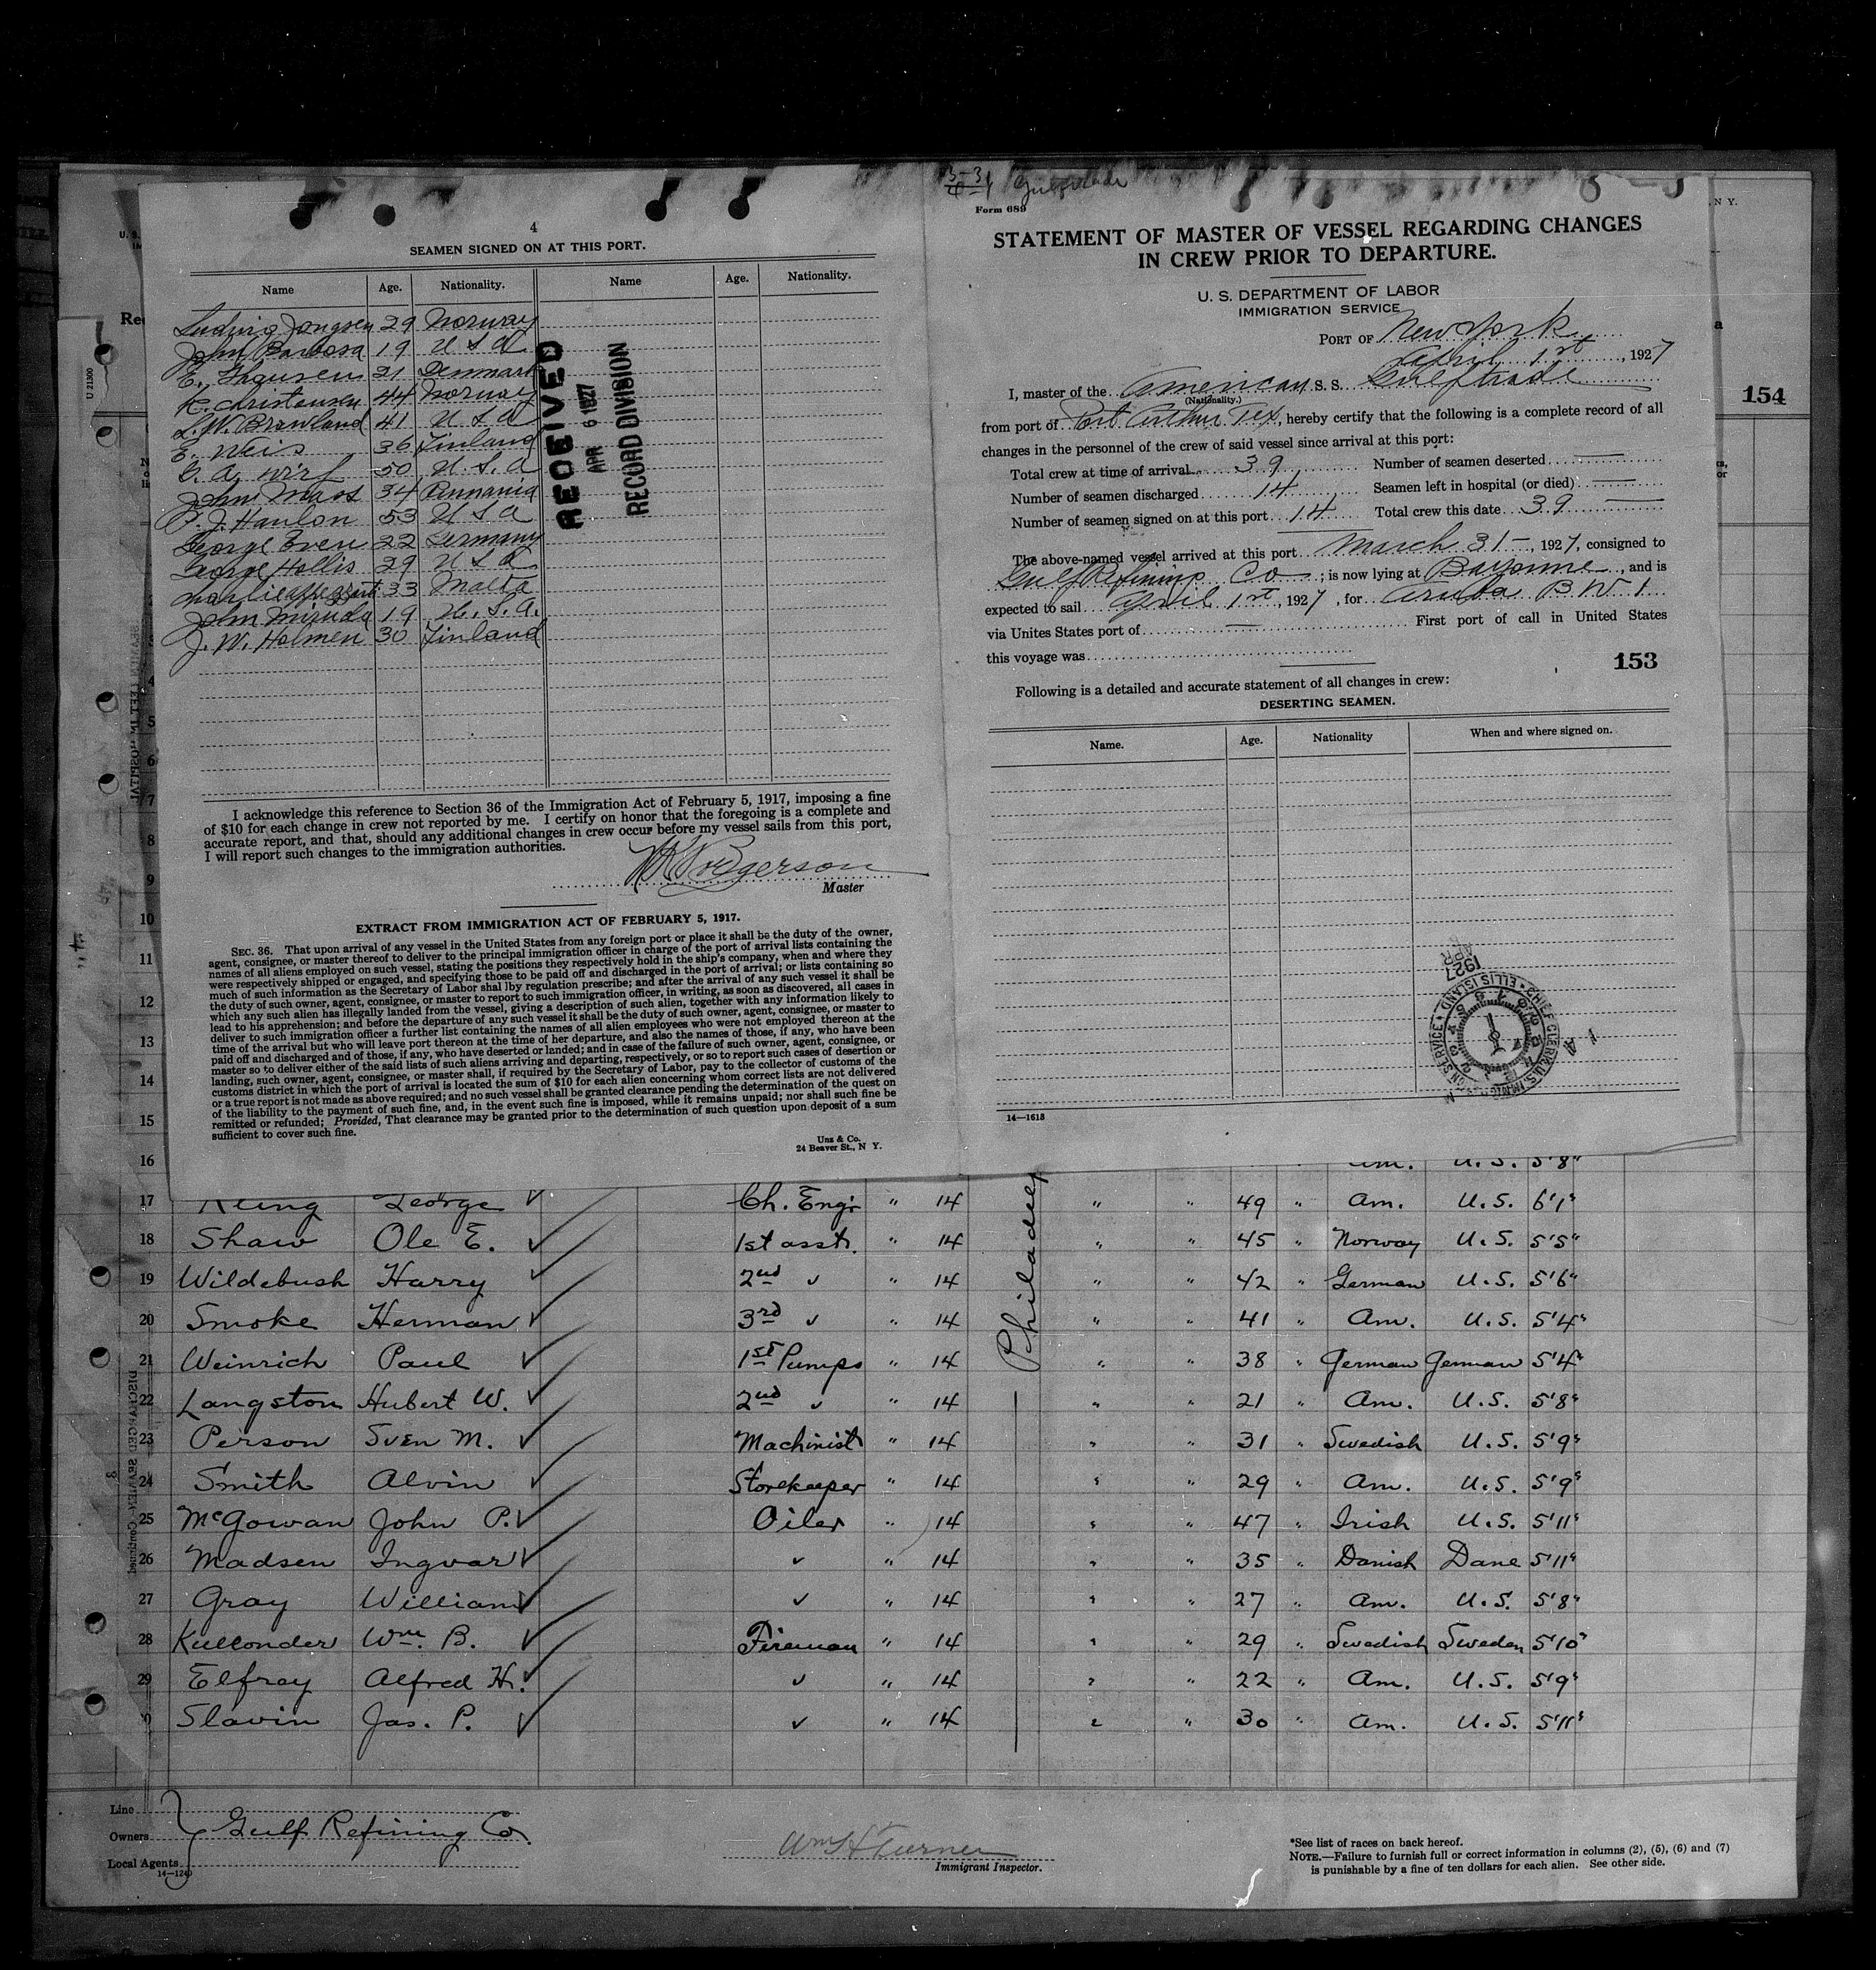 4
SEAMEN SIGNED ON AT THIS PORT.
Name Age. Nationality. Name Age. Nationality.
Ludwig 29 Norway
John Barbosa 19 U S A
E. 21 Denmark
K. Christensen 44 Norway
41 U S A
E. Weis 36 Finland
50 U. S. A
John Maas 34
P. J. Hanlon 53 U S A
George Even 22 Germany
George Hollis 29 U S A
33 Malta
John Miruda 19 U. S. A.
J. W. Holmen 30 Finland
RECEIVED
APR 6 1927
RECORD DIVISION
I acknowledge this reference to Section 36 of the Immigration Act of February 5, 1917, imposing a fine
of $10 for each change in crew not reported by me. I certify on honor that the foregoing is a complete and
accurate report, and that, should any additional changes in crew occur before my vessel sails from this port,
I will report such changes to the immigration authorities.
Master
EXTRACT FROM IMMIGRATION ACT OF FEBRUARY 5, 1917.
SEC. 36. That upon arrival of any vessel in the United States from any foreign port or place it shall be the duty of the owner,
agent, consignee, or master thereof to deliver to the principal immigration officer in charge of the port of arrival lists containing the
names of all aliens employed on such vessel, stating the positions they respectively hold in the ship's company, when and where they
were respectively shipped or engaged, and specifying those to be paid off and discharged in the port of arrival; or lists containing so
much of such information as the Secretary of Labor shal lby regulation prescribe; and after the arrival of any such vessel it shall be
the duty of such owner, agent, consignee, or master to report to such immigration officer, in writing, as soon as discovered, all cases in
which any such alien has illegally landed from the vessel, giving a description of such alien, together with any information likely to
lead to his apprehension; and before the departure of any such vessel it shall be the duty of such owner, agent, consignee, or master to
deliver to such immigration officer a further list containing the names of all alien employees who were not employed thereon at the
time of the arrival but who will leave port thereon at the time of her departure, and also the names of those, if any, who have been
paid off and discharged and of those, if any, who have deserted or landed; and in case of the failure of such owner, agent, consignee, or
master so to deliver either of the said lists of such aliens arriving and departing, respectively, or so to report such cases of desertion or
landing, such owner, agent, consignee, or master shall, if required by the Secretary of Labor, pay to the collector of customs of the
customs district in which the port of arrival is located the sum of $10 for each alien concerning whom correct lists are not delivered
or a true report is not made as above required; and no such vessel shall be granted clearance pending the determination of the quest on
of the liability to the payment of such fine, and, in the event such fine is imposed, while it remains unpaid; nor shall such fine be
remitted or refunded; Provided, That clearance may be granted prior to the determination of such question upon deposit of a sum
sufficient to cover such fine.
Unz & Co.
24 Beaver St., N Y.
Gulftrade
Form 689
STATEMENT OF MASTER OF VESSEL REGARDING CHANGES
IN CREW PRIOR TO DEPARTURE.
U. S. DEPARTMENT OF LABOR
IMMIGRATION SERVICE
PORT OF New York
April 1st, 1927
I, master of the American S. S. Gulftrade
(Nationality.)
from port of Port Arthur Tex, hereby certify that the following is a complete record of all
changes in the personnel of the crew of said vessel since arrival at this port:
Total crew at time of arrival 39 Number of seamen deserted —
Number of seamen discharged 14 Seamen left in hospital (or died) —
Number of seamen signed on at this port 14 Total crew this date 39 —
The above-named vessel arrived at this port March 31-, 1927, consigned to
Gulf Refining Co; is now lying at Bayonne, and is
expected to sail April 1st, 1927, for Aruba B W I
via Unites States port of — First port of call in United States
this voyage was
153
Following is a detailed and accurate statement of all changes in crew:
DESERTING SEAMEN.
Name. Age. Nationality When and where signed on.
14—1613
154
16 Am. U.S. 5'8"
17 George Ch. Engr " 14 " " 49 " Am. U.S. 6'1"
18 Shaw Ole E. 1st asst. " 14 " " 45 " Norway U.S. 5'5"
19 Wildebush Harry 2nd " 14 " " 42 " German U.S. 5'6"
20 Smoke Herman 3rd " 14 " " 41 " Am. U.S. 5'4"
21 Weinrich Paul 1st Pumps " 14 " " 38 " German German 5'4"
22 Langston Hubert W. 2nd " 14 " " 21 " Am. U.S. 5'8"
23 Person Sven M. Machinist " 14 " " 31 " Swedish U.S. 5'9"
24 Smith Alvin Storekeeper " 14 " " 29 " Am. U.S. 5'9"
25 McGowan John P. Oiler " 14 " " 47 " Irish U.S. 5'11"
26 Madsen Ingvar " 14 " " 35 " Danish Dane 5'11"
27 Gray William " 14 " " 27 " Am. U.S. 5'8"
28 Kullonder Wm. B. Fireman " 14 " " 29 " Swedish Sweden 5'10"
29 Elfray Alfred H. " 14 " " 22 " Am. U.S. 5'9"
Slavin Jas. P. " 14 " " 30 " Am. U.S. 5'11"
Line
Owners Gulf Refining Co.
Local Agents
14—1240
Wm H Turner
Immigrant Inspector.
*See list of races on back hereof.
NOTE.—Failure to furnish full or correct information in columns (2), (5), (6) and (7)
is punishable by a fine of ten dollars for each alien. See other side.